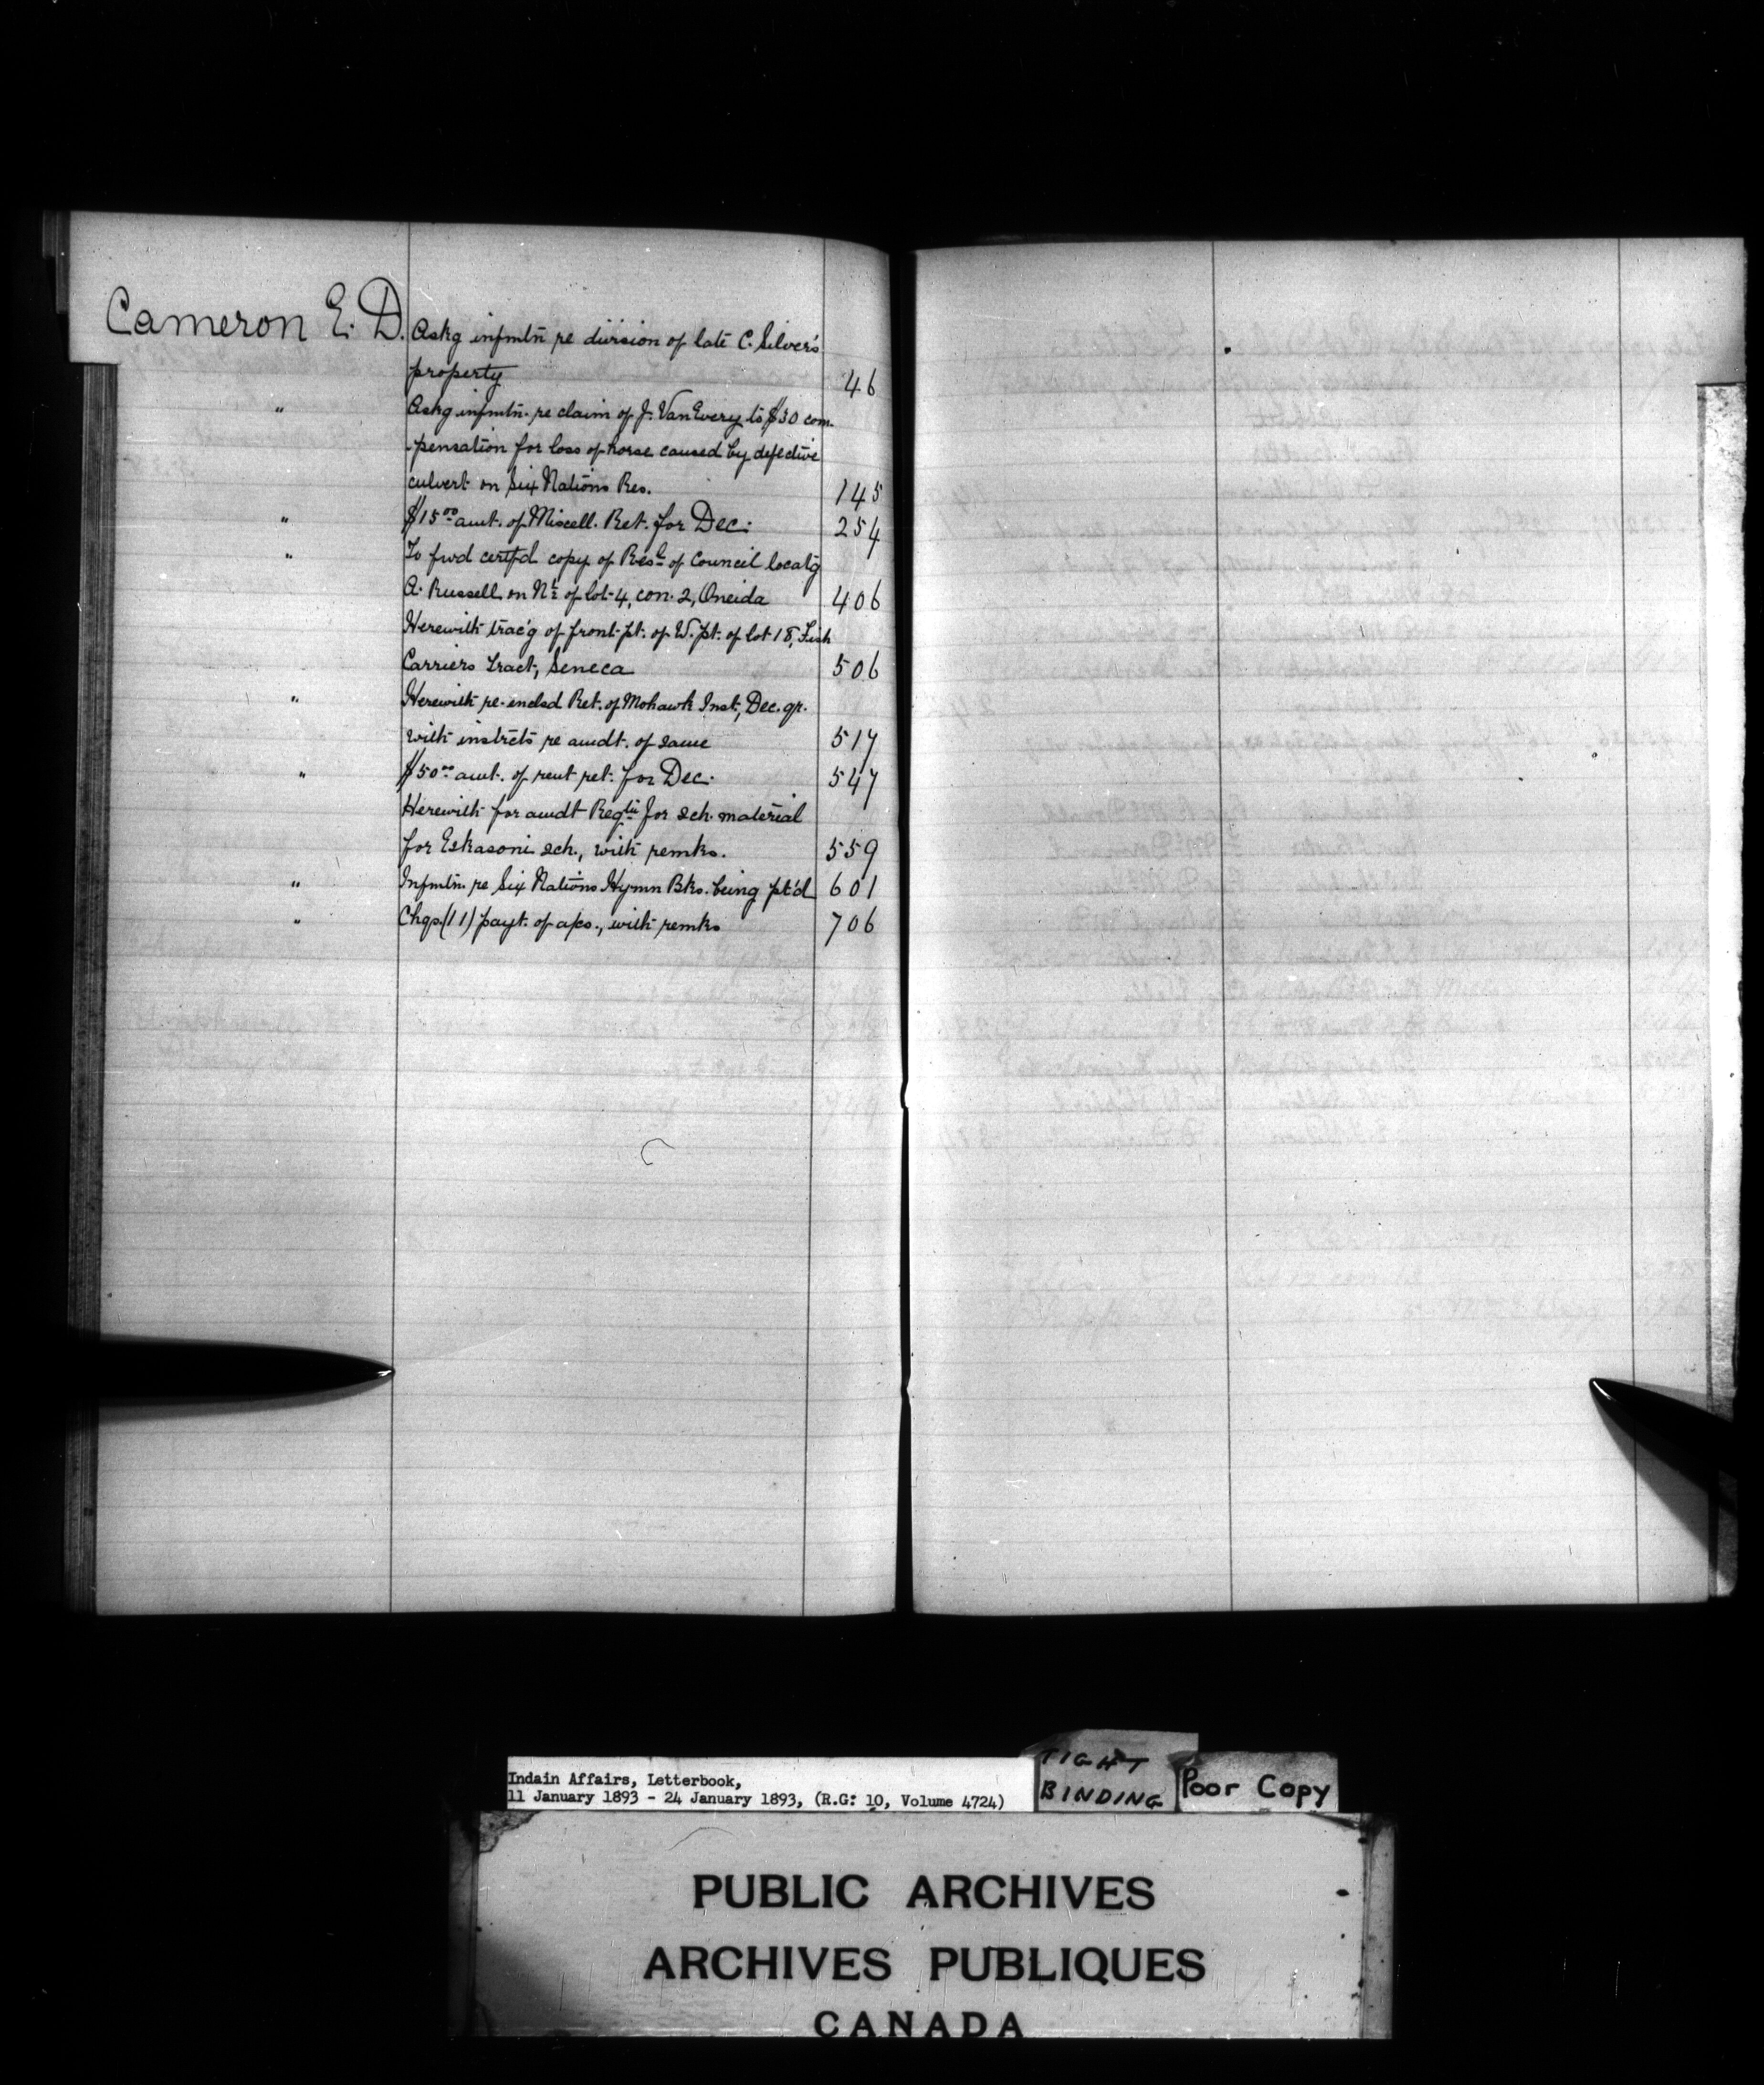 Cameron E. D. Askg infmtn re division of late C. Silver's
property 46
" Askg infmtn. re claim of J. VanEvery to $30 com-
-pensation for loss of horse caused by defective
culvert on Six Nations Res. 145
" $15.00 amt. of Miscell. Ret. for Dec: 254
" To fwd certfd copy of Resn of Council locatg
A. Russell on N½ of lot 4, con. 2, Oneida 406
Herewith trac'g of front pt. of W. pt. of lot 18, Fish
Carriers Tract, Seneca 506
" Herewith re-enclsd Ret. of Mohawk Inst, Dec. qr.
with instrcts re amdt. of same 517
" $50.00 amt. of rent ret. for Dec. 547
Herewith for amdt Reqtn for sch. material
for Eskasoni sch., with remks. 559
" Infmtn re Six Nations Hymn Bks. being pt'd 601
" Chqs (11) payt. of a/cs., with remks 706
Indain Affairs, Letterbook,
11 January 1893 - 24 January 1893, (R.G: 10, Volume 4724)
TIGHT
BINDING
Poor Copy
PUBLIC ARCHIVES
ARCHIVES PUBLIQUES
CANADA